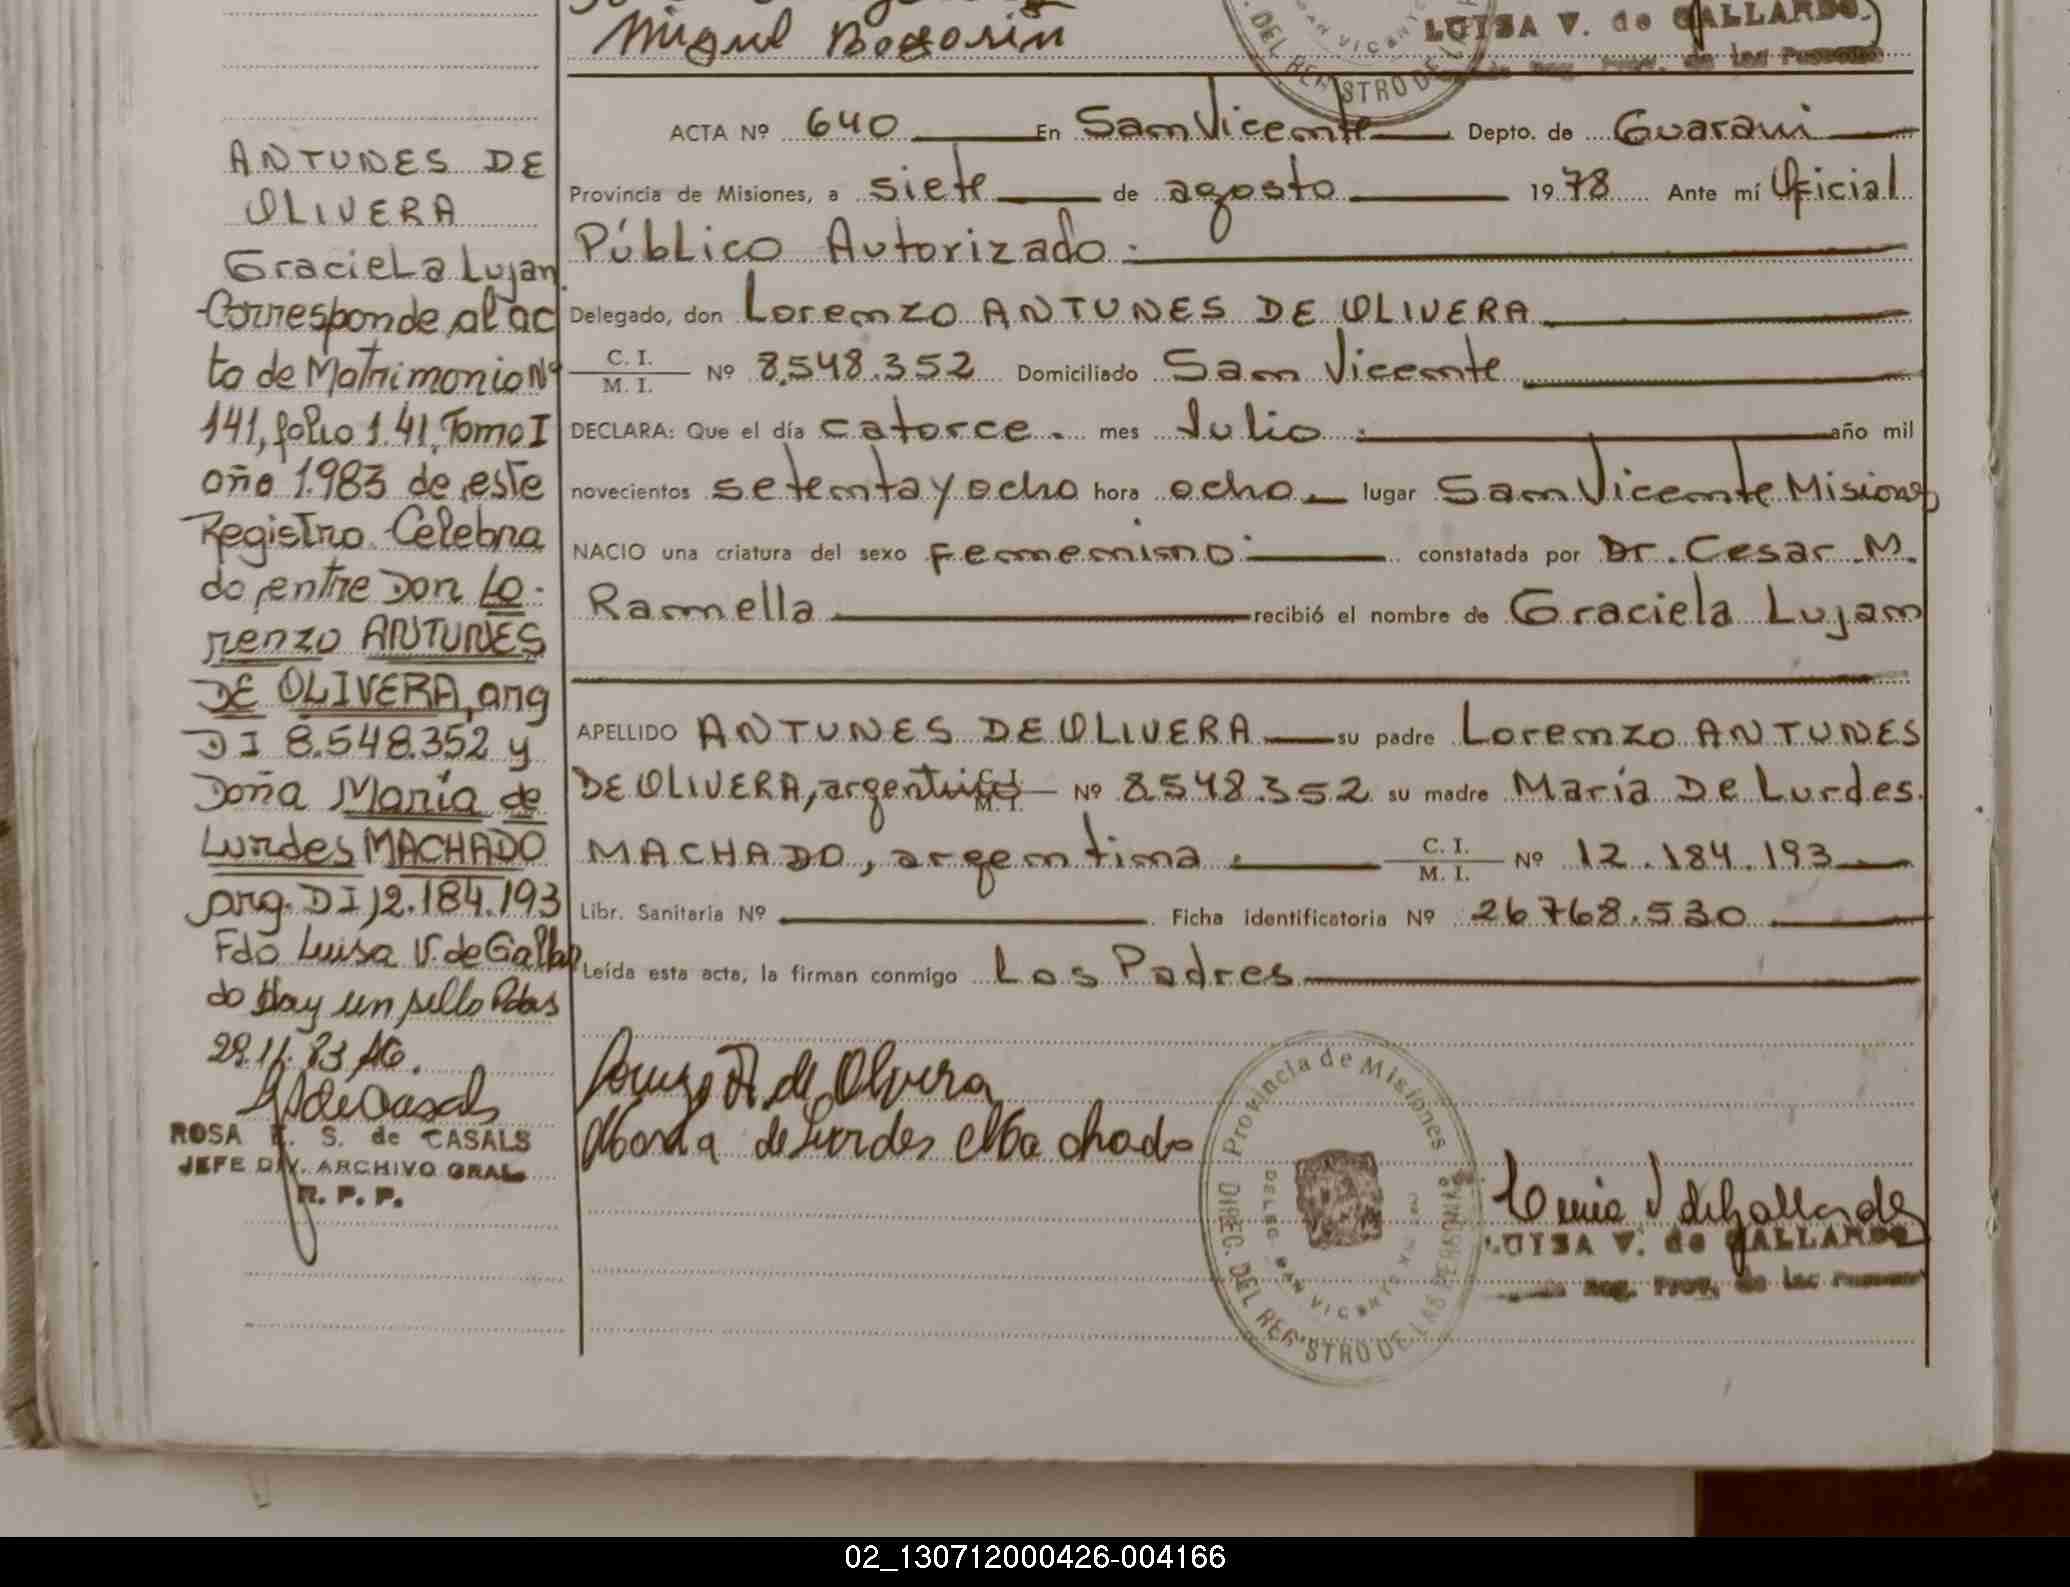 Miguel Bogorin
LUISA V. de GALLARDO
Reg. Prov. de las Personas
ANTUNES DE
OLIVERA
Graciela Lujan
Corresponde al ac
ta de Matrimonio Nº
141, folio 141, Tomo I
año 1.983 de este
Registro Celebra
do entre Don Lo-
renzo ANTUNES
DE OLIVERA, arg
DI 8.548.352 y
Doña María de
Lurdes MACHADO
arg. DI 12.184.193
Fdo Luisa V. de Gallar
do Hay un sello Pdas
29.11.83
ROSA E. S. de CASALS
JEFE DIV. ARCHIVO GRAL.
R. P. P.
ACTA Nº 640 En San Vicente Depto. de Guarani
Provincia de Misiones, a siete de agosto 1978 Ante mí Oficial
Público Autorizado.
Delegado, don Lorenzo ANTUNES DE OLIVERA
C. I.
M. I. Nº 8.548.352 Domiciliado San Vicente
DECLARA: Que el día catorce. mes Julio. año mil
novecientos setenta y ocho hora ocho lugar San Vicente Misiones
NACIO una criatura del sexo femenino constatada por Dr. Cesar M.
Ramella recibió el nombre de Graciela Lujan
APELLIDO ANTUNES DE OLIVERA su padre Lorenzo ANTUNES
DE OLIVERA, argentino C. I. M. I. Nº 8.548.352 su madre María De Lurdes
MACHADO, argentina. C. I. M. I. Nº 12.184.193
Libr. Sanitaria Nº Ficha identificatoria Nº 26.768.530
Leída esta acta, la firman conmigo Los Padres
Lorenzo A. de Olivera
Maria de Lurdes Machado
Provincia de Misiones
DIREC. DEL REGISTRO DE LAS PERSONAS
DELEG. SAN VICENTE
Luisa V de Gallardo
LUISA V. de GALLARDO
Reg. Prov. de las Personas
02_130712000426-004166